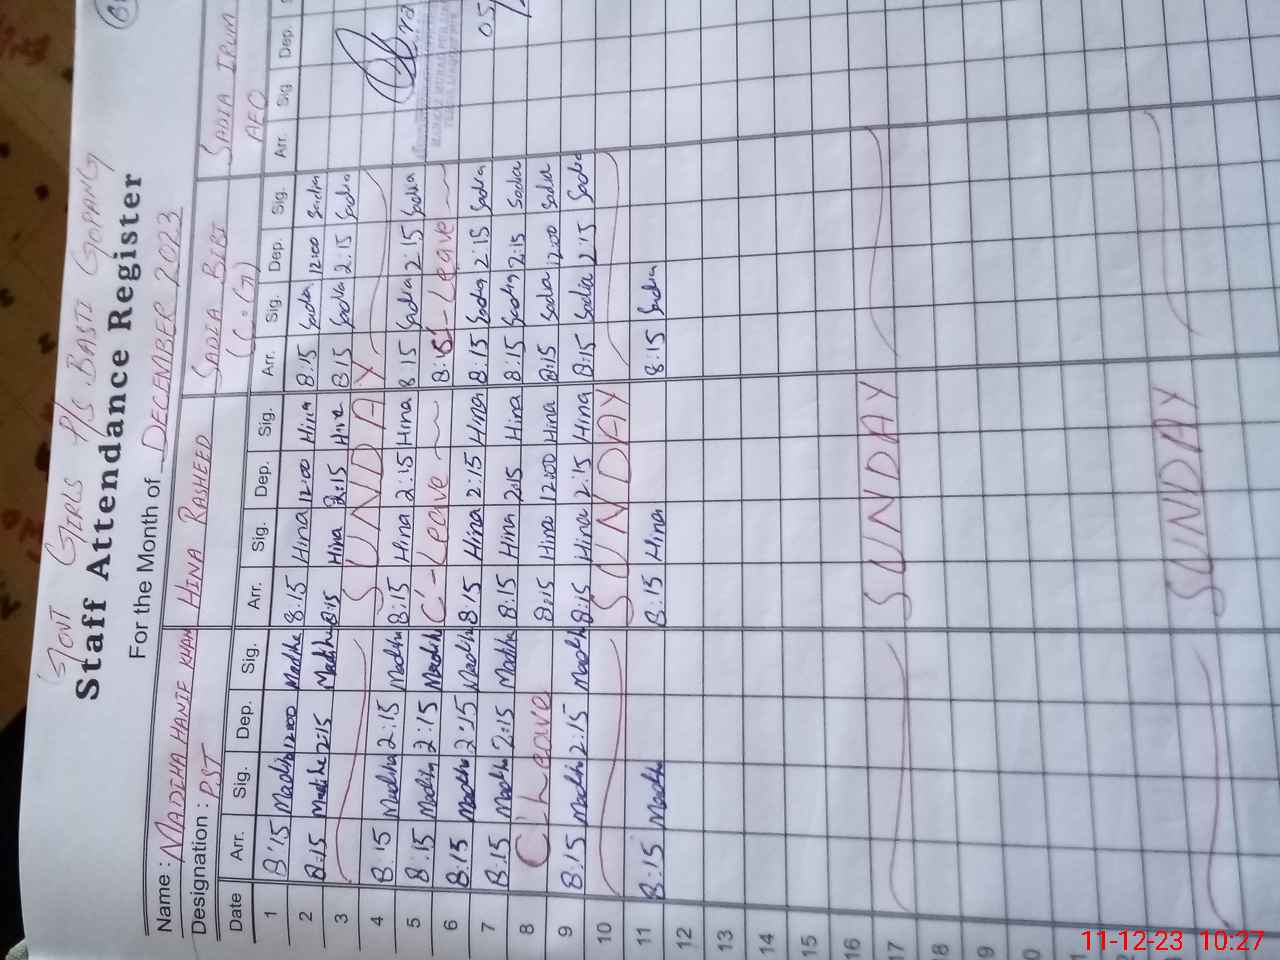 GOVT GIRLS P/S BASTI GOPANG
Staff Attendance Register
For the Month of DECEMBER 2023
Name : MADIHA HANIF KHAN HINA RASHEED SADIA BIBI SADIA IRUM
Designation : PST (C.G) AEO
Date Arr. Sig. Dep. Sig. Arr. Sig. Dep. Sig. Arr. Sig. Dep. Sig. Arr. Sig. Dep.
1 8:15 Madiha 12:00 Madiha 8:15 Hina 12:00 Hina 8:15 Sadia 12:00 Sadia
2 8:15 Madiha 2:15 Madiha 8:15 Hina 2:15 Hina 8:15 Sadia 2:15 Sadia
3 SUNDAY
4 8:15 Madiha 2:15 Madiha 8:15 Hina 2:15 Hina 8:15 Sadia 2:15 Sadia
5 8:15 Madiha 2:15 Madiha C'-Leave 8:15 C'-Leave
6 8:15 Madiha 2:15 Madiha 8:15 Hina 2:15 Hina 8:15 Sadia 2:15 Sadia
7 8:15 Madiha 2:15 Madiha 8:15 Hina 2:15 Hina 8:15 Sadia 2:15 Sadia
8 C'Leave 8:15 Hina 12:00 Hina 8:15 Sadia 12:00 Sadia
9 8:15 Madiha 2:15 Madiha 8:15 Hina 2:15 Hina 8:15 Sadia 2:15 Sadia
10 SUNDAY
11 8:15 Madiha 8:15 Hina 8:15 Sadia
12
13
14
15
16
17 SUNDAY
18
SUNDAY
11-12-23 10:27